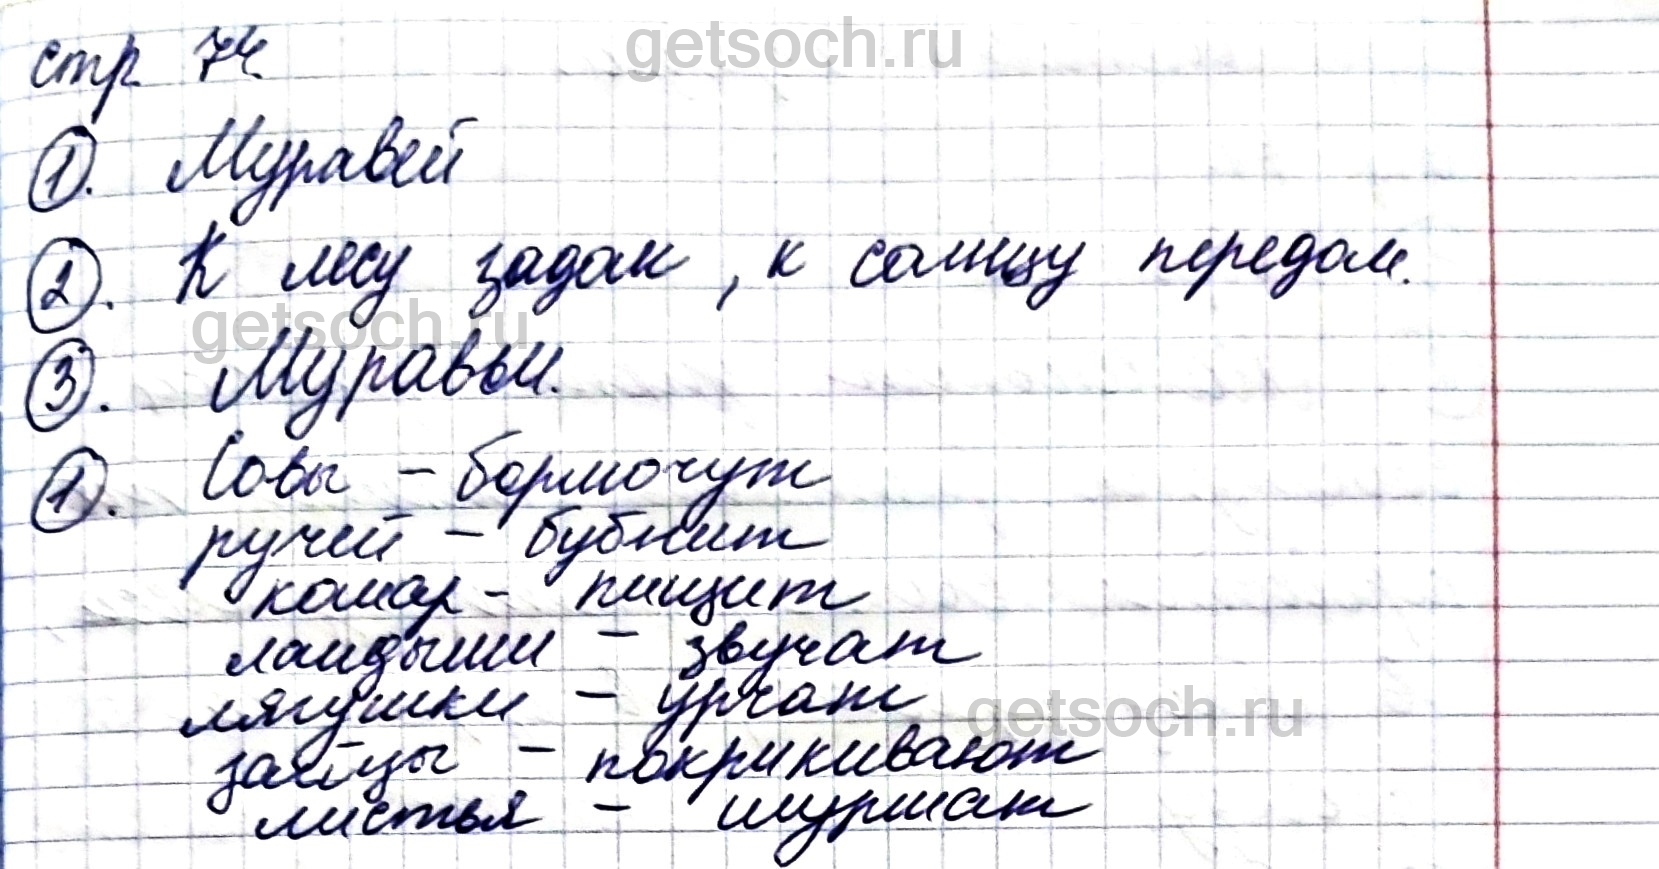 getsoch.ru
стр 74
1. Муравей
2. К лесу задом, к солнцу передом.
getsoch.ru
3. Муравьи.
1. Совы - бормочут
ручей - бубнит
комар - пищит
ландыши - звучат
лягушки - урчат
getsoch.ru
зайцы - покрикивают
листья - шуршат